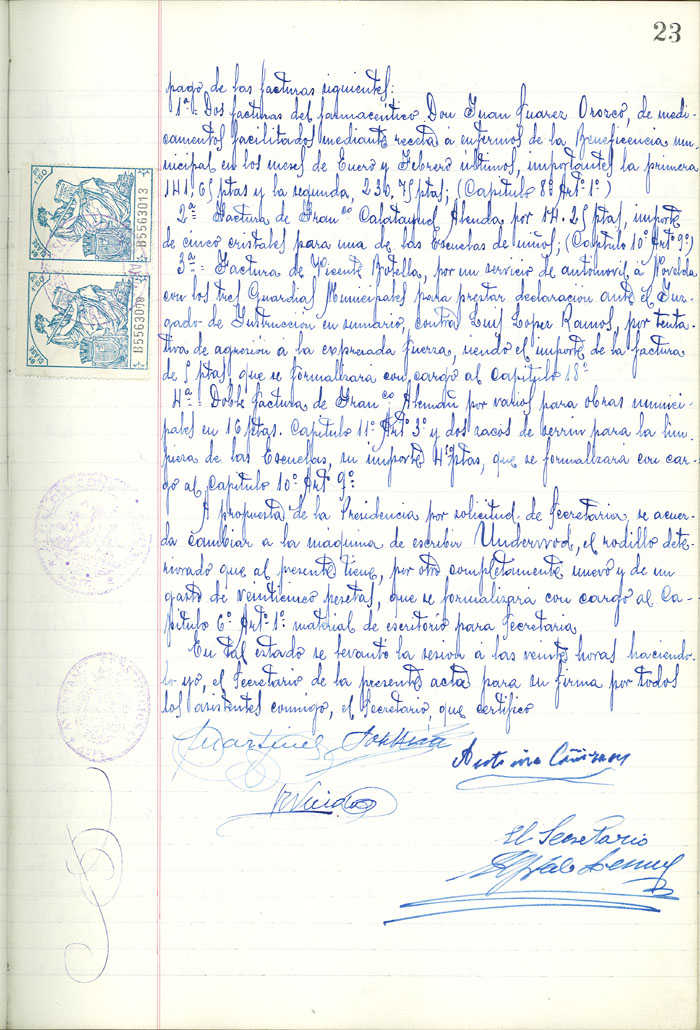 23
pago de las facturas siguientes:
1ª- Dos facturas del farmaceutico Don Juan Suarez Orozco, de medi-
camentos facilitados mediante receta á enfermos de la Beneficencia mu-
nicipal en los meses de Enero y Febrero ultimos, importantes la primera
141,65 ptas y la segunda, 236,75 ptas; (Capitulo 8º Artº 1º)
2ª- Factura de Franco Calatayud Abenda por 14.25 ptas, importe
de cinco cristales para una de las Escuelas de niños; (Capitulo 10º Artº 9º)
3ª- Factura de Vicente Botella, por un servicio de automovil á Novelda
con los tres Guardias Municipales para prestar declaracion ante el Juz-
gado de Instrucción en sumario, contra Luis Lopez Ramos, por tenta-
tiva de agresion á la expresada fuerza, siendo el importe de la factura
de 5 ptas, que se formalizará con cargo al Capitulo 18º
4ª- Doble factura de Franco Alemañ por varios para obras munici-
pales en 16 ptas. Capitulo 11º Artº 3º y dos sacos de serrin para la lim-
pieza de las Escuelas, su importe 4 ptas, que se formalizará con car-
go al Capitulo 10º Artº 9º
A propuesta de la Presidencia por solicitud de Secretaria, se acuer-
da cambiar a la maquina de escribir Underwod, el rodillo dete-
riorado que al presente tiene, por otro completamente nuevo y de un
gasto de veinticinco pesetas, que se formalizará con cargo al Ca-
pitulo 6º Artº 1º material de escritorio para Secretaria
En tal estado se levantó la sesion á las veinte horas haciendo-
lo yo, el Secretario de la presente acta para su firma por todos
los asistentes conmigo, el Secretario, que certifico
B5563013
B5563008
Martinez
Antonio Cañizares
El Secretario